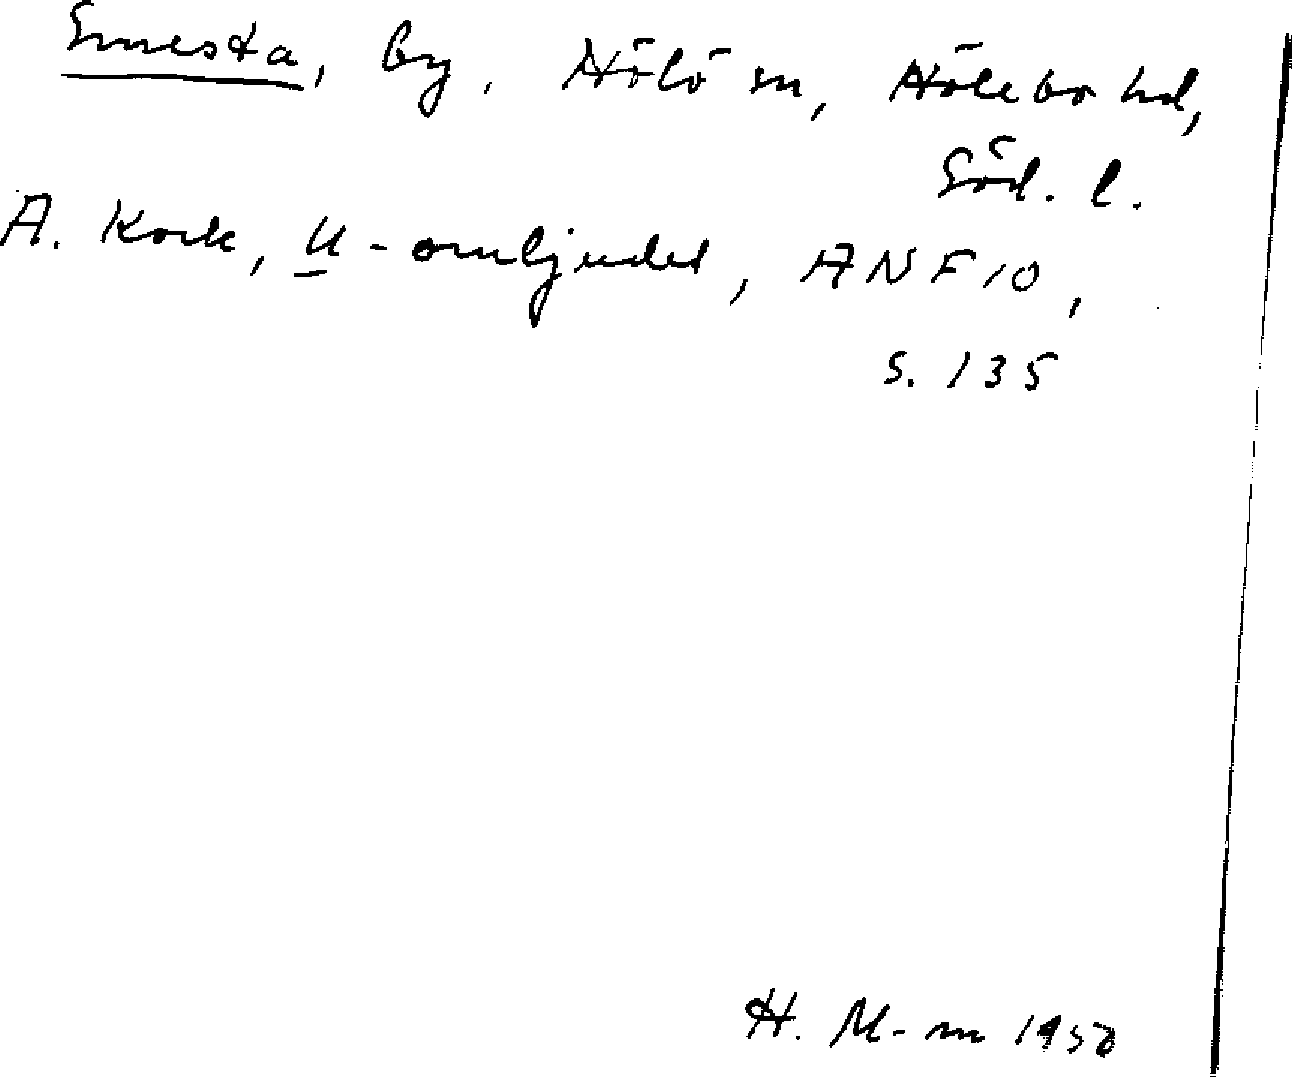 Ennesta, by, Hölö sn, Hölebo hd,
Söd. l.
A. Kock, u-omljudet, ANF 10,
s. 135
H. M-m 1950